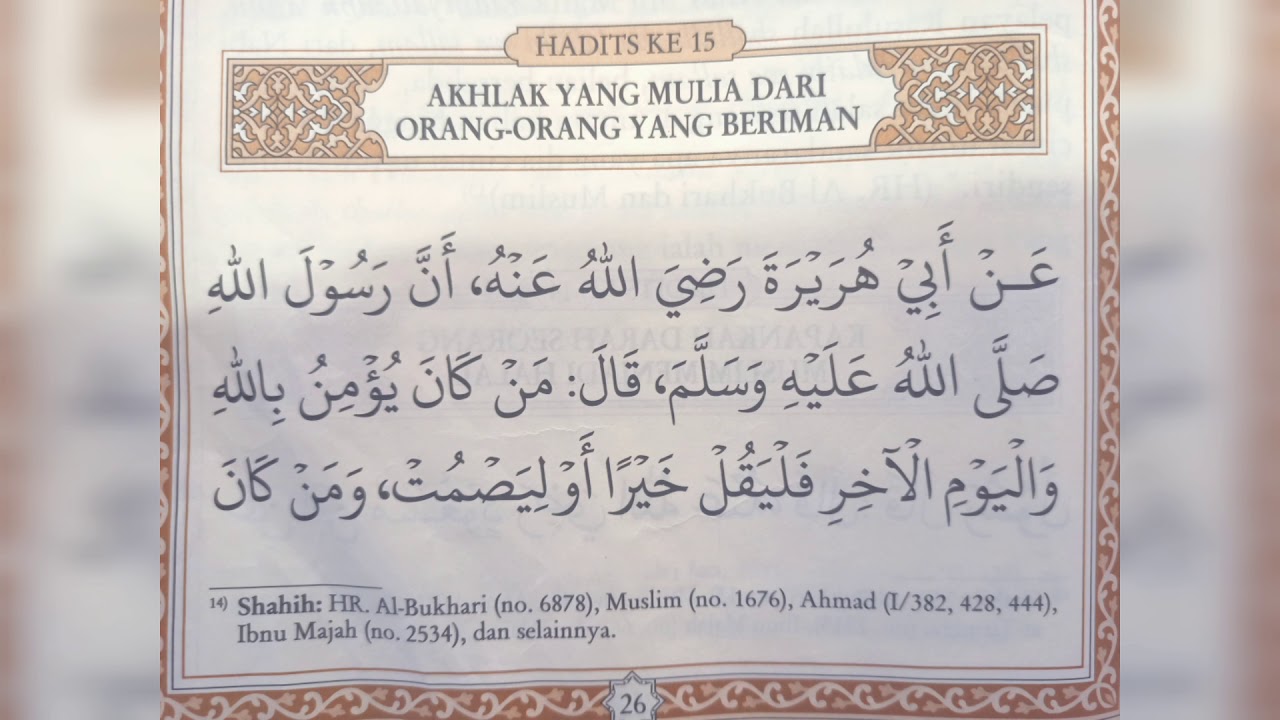 HADITS KE 15
AKHLAK YANG MULIA DARI
ORANG-ORANG YANG BERIMAN
عَـنْ أَبِيْ هُرَيْرَةَ رَضِيَ اللهُ عَنْهُ، أَنَّ رَسُوْلَ اللهِ
صَلَّى اللهُ عَلَيْهِ وَسَلَّم، قَالَ: مَنْ كَانَ يُؤْمِنُ بِاللهِ
وَالْيَوْمِ الْآخِرِ فَلْيَقُلْ خَيْرًا أَوْ لِيَصْمُتْ، وَمَنْ كَانَ
14) Shahih: HR. Al-Bukhari (no. 6878), Muslim (no. 1676), Ahmad (I/382, 428, 444),
Ibnu Majah (no. 2534), dan selainnya.
26